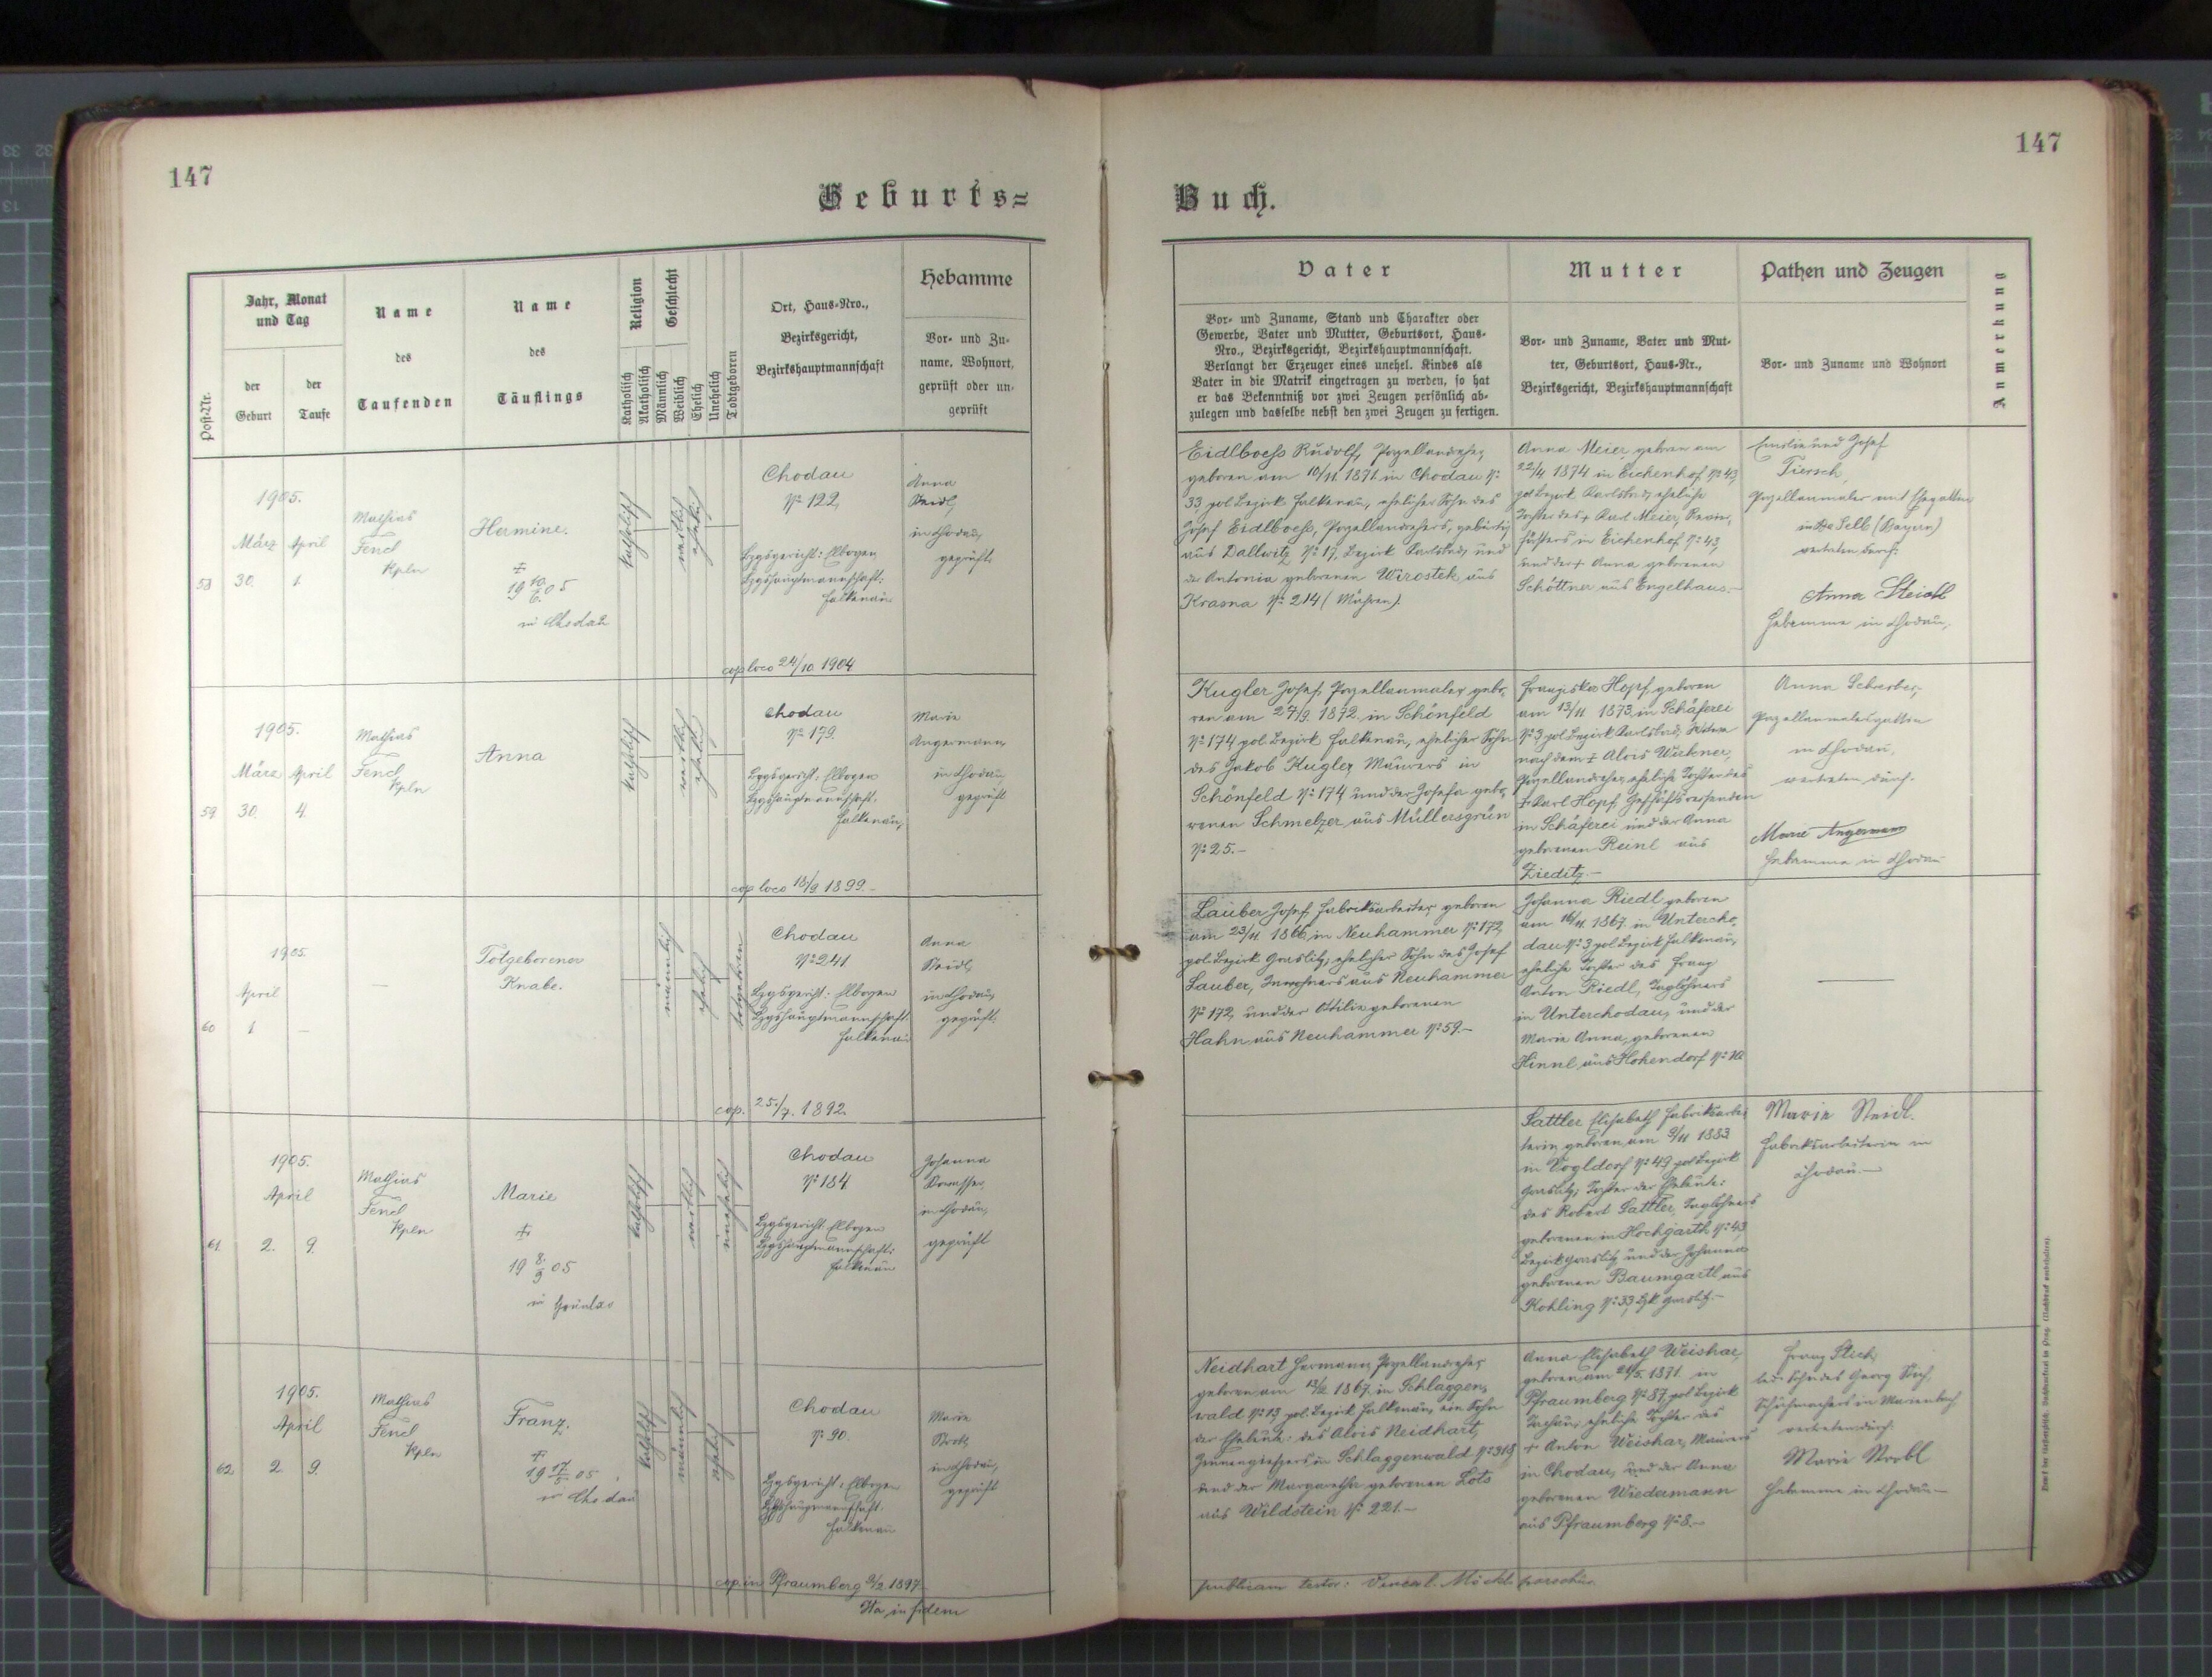 147
147
Geburts=
Buch.
Post-Nr.
Jahr, Monat
und Tag
der
Geburt
der
Taufe
Name
des
Taufenden
Name
des
Täuflings
Religion
Katholisch
Akatholisch
Geschlecht
Männlich
Weiblich
Ehelich
Unehelich
Todtgeboren
Ort, Haus-Nro.,
Bezirksgericht,
Bezirkshauptmannschaft
Hebamme
Vor- und Zu-
name, Wohnort,
geprüft oder un-
geprüft
Vater
Vor- und Zuname, Stand und Charakter oder
Gewerbe, Vater und Mutter, Geburtsort, Haus-
Nro., Bezirksgericht, Bezirkshauptmannschaft.
Verlangt der Erzeuger eines unehel. Kindes als
Vater in die Matrik eingetragen zu werden, so hat
er das Bekenntniß vor zwei Zeugen persönlich ab-
zulegen und dasselbe nebst den zwei Zeugen zu fertigen.
Mutter
Vor- und Zuname, Vater und Mut-
ter, Geburtsort, Haus-Nr.,
Bezirksgericht, Bezirkshauptmannschaft
Pathen und Zeugen
Vor- und Zuname und Wohnort
Anmerkung
58
1905.
März April
30. 1.
Mathias
Fencl
Kpln
Hermine.
in Chodau
katholisch
weiblich
ehelich
Chodau
No 122
Bzgsgericht: Elbogen
Bzgshauptmannschaft:
Falkenau
cop loco 24/10 1904
Anna
Steidl
in Chodau,
geprüft
Eidlboeß Rudolf, Porzellandreher
geboren am 10/11 1871 in Chodau No
33 pol Bezirk Falkenau, ehelicher Sohn des
Josef Eidlboeß, Porzellandrehers, gebürtig
aus Dallwitz No 17, Bezirk Karlsbad und
der Antonia geborenen Wirostek aus
Krasna No 214 (Mähren).
Anna Meier geboren am
22/4 1874 in Eichenhof No 43,
pol Bezirk Karlsbad, eheliche
Tochter des + Karl Meier,
in Eichenhof No 43,
und der + Anna geborenen
Schöttner aus Engelhaus.-
Emilie und Josef
Tiersch,
Porzellanmaler mit Ehegattin
in Selb (Bayern)
vertreten durch:
Anna Steidl
Hebamme in Chodau,
59
1905.
März April
30. 4.
Mathias
Fencl
Kpln
Anna
katholisch
weiblich
ehelich
Chodau
No 179
Bzgsgericht: Elbogen
Bzgshauptmannschaft:
Falkenau,
cop loco 18/9 1899.-
Marie
Angermann
in Chodau,
geprüft
Kugler Josef, Porzellanmaler, gebo-
ren am 27/9 1872 in Schönfeld
No 174 pol Bezirk Falkenau, ehelicher Sohn
des Jakob Kugler, Maurers in
Schönfeld No 174 und der Josefa gebo-
renen Schmelzer aus Müllersgrün
No 25.-
Franziska Hopf, geboren
am 13/11 1873 in Schäferei
No 3 pol Bezirk Karlsbad, Witwe
nach dem + Alois Wickner,
Porzellandreher, eheliche Tochter des
+ Karl Hopf, Geschäftsreisenden
in Schäferei und der Anna
geborenen Reinl aus
Zieditz.-
Anna Scherber,
Porzellanmalersgattin
in Chodau,
vertreten durch
Marie Angermann
Hebamme in Chodau
60
1905.
April
1 —
—
Totgeborener
Knabe.
männlich
ehelich
totgeboren
Chodau
No 241
Bzgsgericht: Elbogen
Bzgshauptmannschaft
Falkenau
cop. 25/7. 1892
Anna
Steidl
in Chodau,
geprüft.
Lauber Josef, Fabriksarbeiter, geboren
am 23/11 1866 in Neuhammer No 172
pol Bezirk Graslitz, ehelicher Sohn des Josef
Lauber, Inwohners aus Neuhammer
No 172 und der Ottilie geborenen
Hahn aus Neuhammer No 59.-
Johanna Riedl, geboren
am 16/11 1867 in Untercho-
dau No 3 pol Bezirk Falkenau,
eheliche Tochter des Franz
Anton Riedl, Taglöhners
in Unterchodau, und der
Marie Anna, geborenen
Hinnl aus Hohendorf No 10
61
1905.
April
2. 9.
Mathias
Fencl
Kpln
Marie
19 8/9 05
in
katholisch
weiblich
unehelich
Chodau
No 184
Bzgsgericht: Elbogen
Bzgshauptmannschaft:
Falkenau
Johanna
in Chodau,
geprüft
Sattler Elisabeth, Fabriksarbei-
terin, geboren am 9/11 1883
in Vogldorf No 49 pol Bezirk
Graslitz, Tochter der Eheleute:
des Robert Sattler, Taglöhners
geboren in Hochgarth No 43,
Bezirk Graslitz und der Johanna
geborenen Baumgartl aus
Kohling No 33, Bzk Graslitz.-
Marie Steidl.
Fabriksarbeiterin in
Chodau.-
62
1905.
April
2. 9.
Mathias
Fencl
Kpln
Franz.
19 17/5 05
in Chodau
katholisch
männlich
ehelich
Chodau
No 90.
Bzgsgericht: Elbogen
Bzgshauptmannschaft:
Falkenau
cop. in Pfraumberg 9/2 1897
Marie
Strobl
in Chodau,
geprüft
Neidhart Hermann, Porzellandreher
geboren am 13/2 1867 in Schlaggen-
wald No 13 pol. Bezirk Falkenau, ein Sohn
der Eheleute: des Alois Neidhart,
Zinnengießers in Schlaggenwald No 318
und der Margaretha geborenen Lots
aus Wildstein No 221.-
Anna Elisabeth Weishar,
geboren am 21/5. 1871. in
Pfraumberg No 87, pol Bezirk
Tachau, eheliche Tochter des
+ Anton Weishar, Maurers
in Chodau, und der Anna
geborenen Wiedermann
aus Pfraumberg No 8.-
Franz Stich,
led. Sohn des Georg Stich,
Schuhmachers in Marienbad
vertreten durch:
Marie Strobl
Hebamme in Chodau-
Ita in fidem
publicam testor: